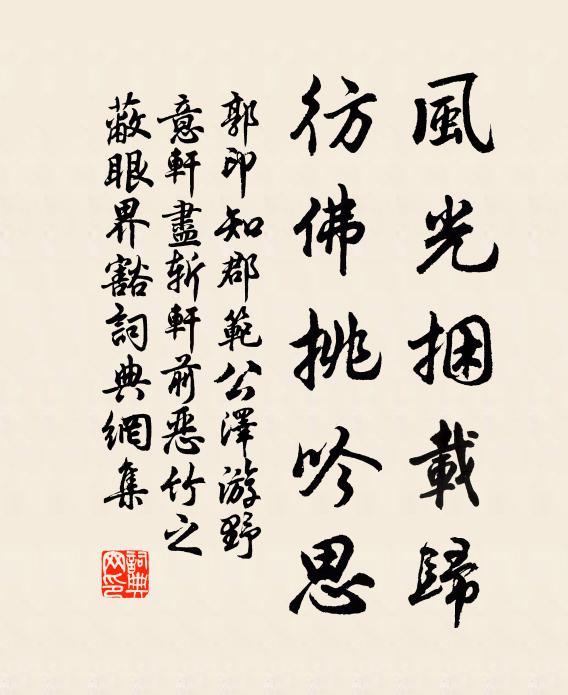 風光捆載歸
彷彿挑吟思
郭印知郡範公澤游野
意軒盡斬軒前惡竹之
蔽眼界豁詞典網集
詞典网印